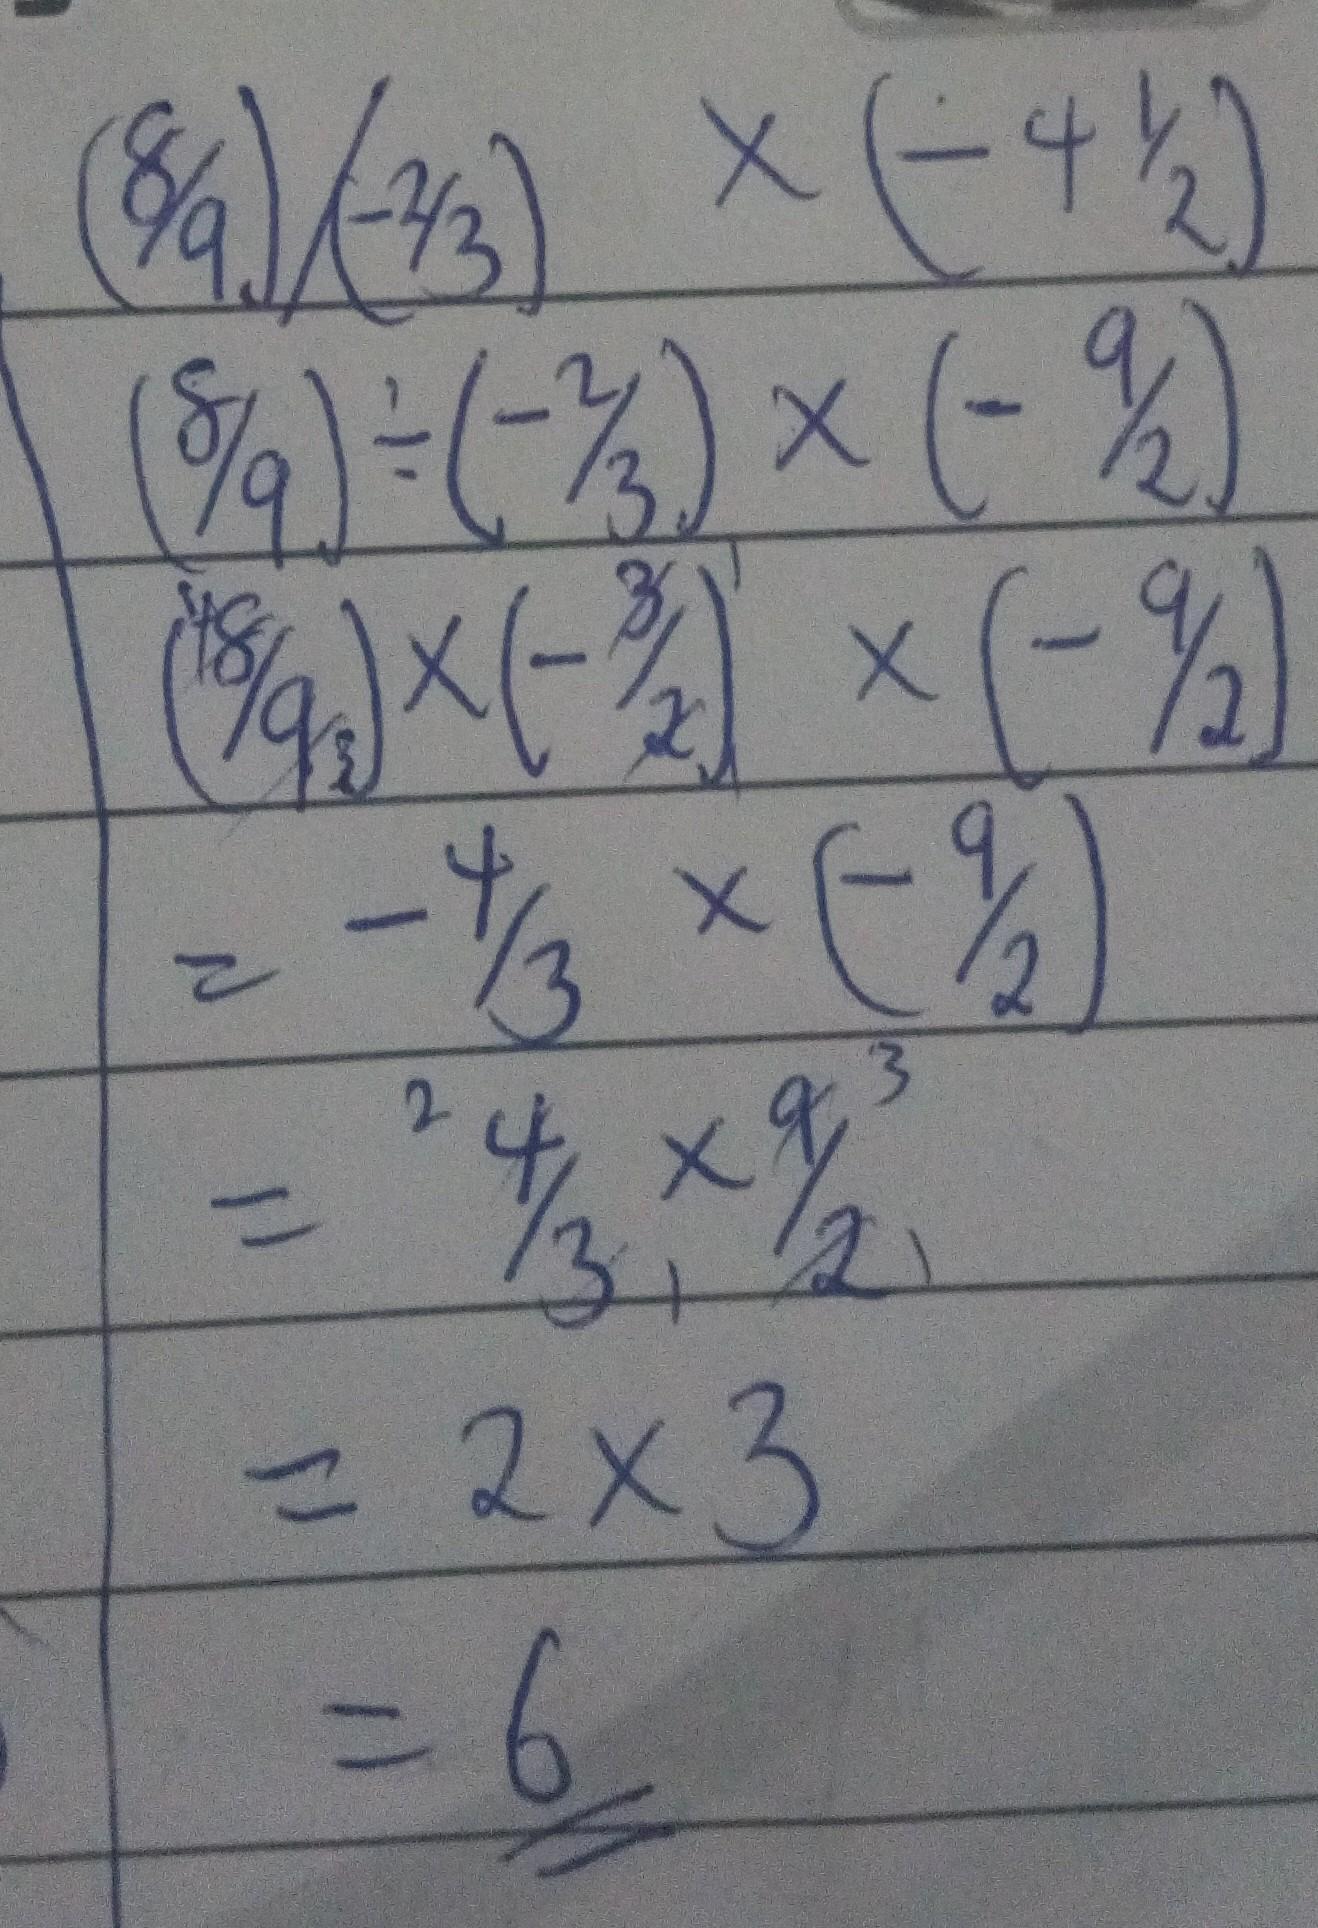 (8/9)/(-2/3) × (-4 1/2)
(8/9) ÷ (-2/3) × (-9/2)
(4 8/9 3) × (-3/2) 1 × (-9/2)
= -4/3 × (-9/2)
= 2 4/3 1 × 9/2 3 1
= 2 × 3
= 6